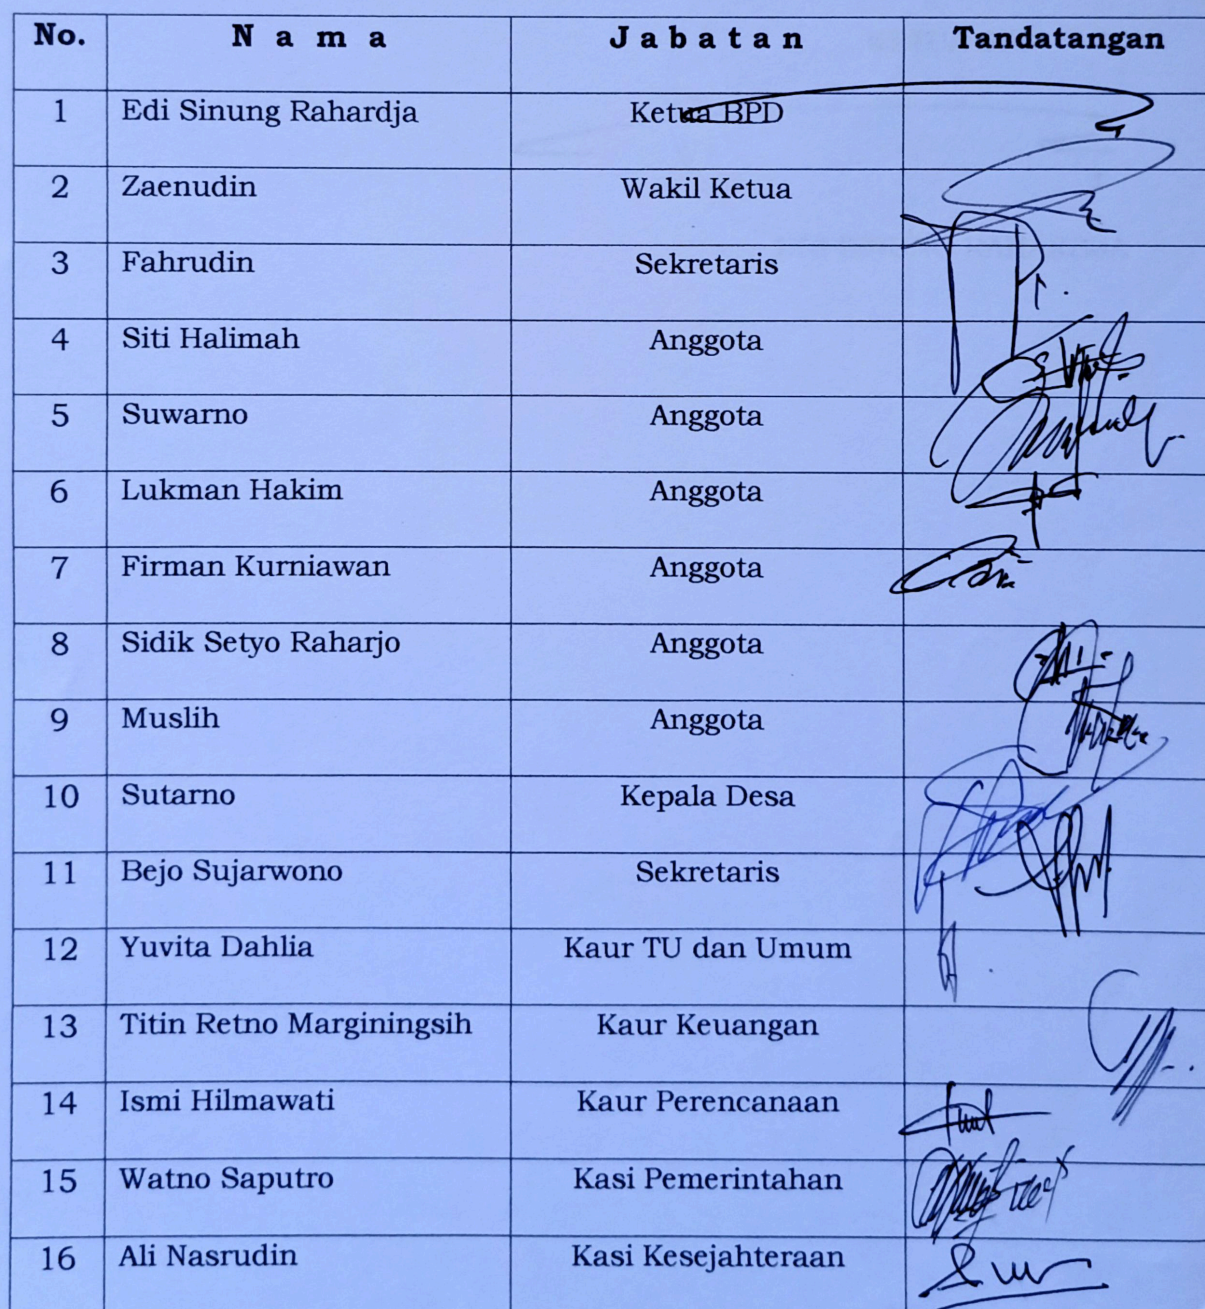 No. N a m a J a b a t a n Tandatangan
1 Edi Sinung Rahardja Ketua BPD
2 Zaenudin Wakil Ketua
3 Fahrudin Sekretaris
4 Siti Halimah Anggota
5 Suwarno Anggota
6 Lukman Hakim Anggota
7 Firman Kurniawan Anggota
8 Sidik Setyo Raharjo Anggota
9 Muslih Anggota
10 Sutarno Kepala Desa
11 Bejo Sujarwono Sekretaris
12 Yuvita Dahlia Kaur TU dan Umum
13 Titin Retno Marginingsih Kaur Keuangan
14 Ismi Hilmawati Kaur Perencanaan
15 Watno Saputro Kasi Pemerintahan
16 Ali Nasrudin Kasi Kesejahteraan